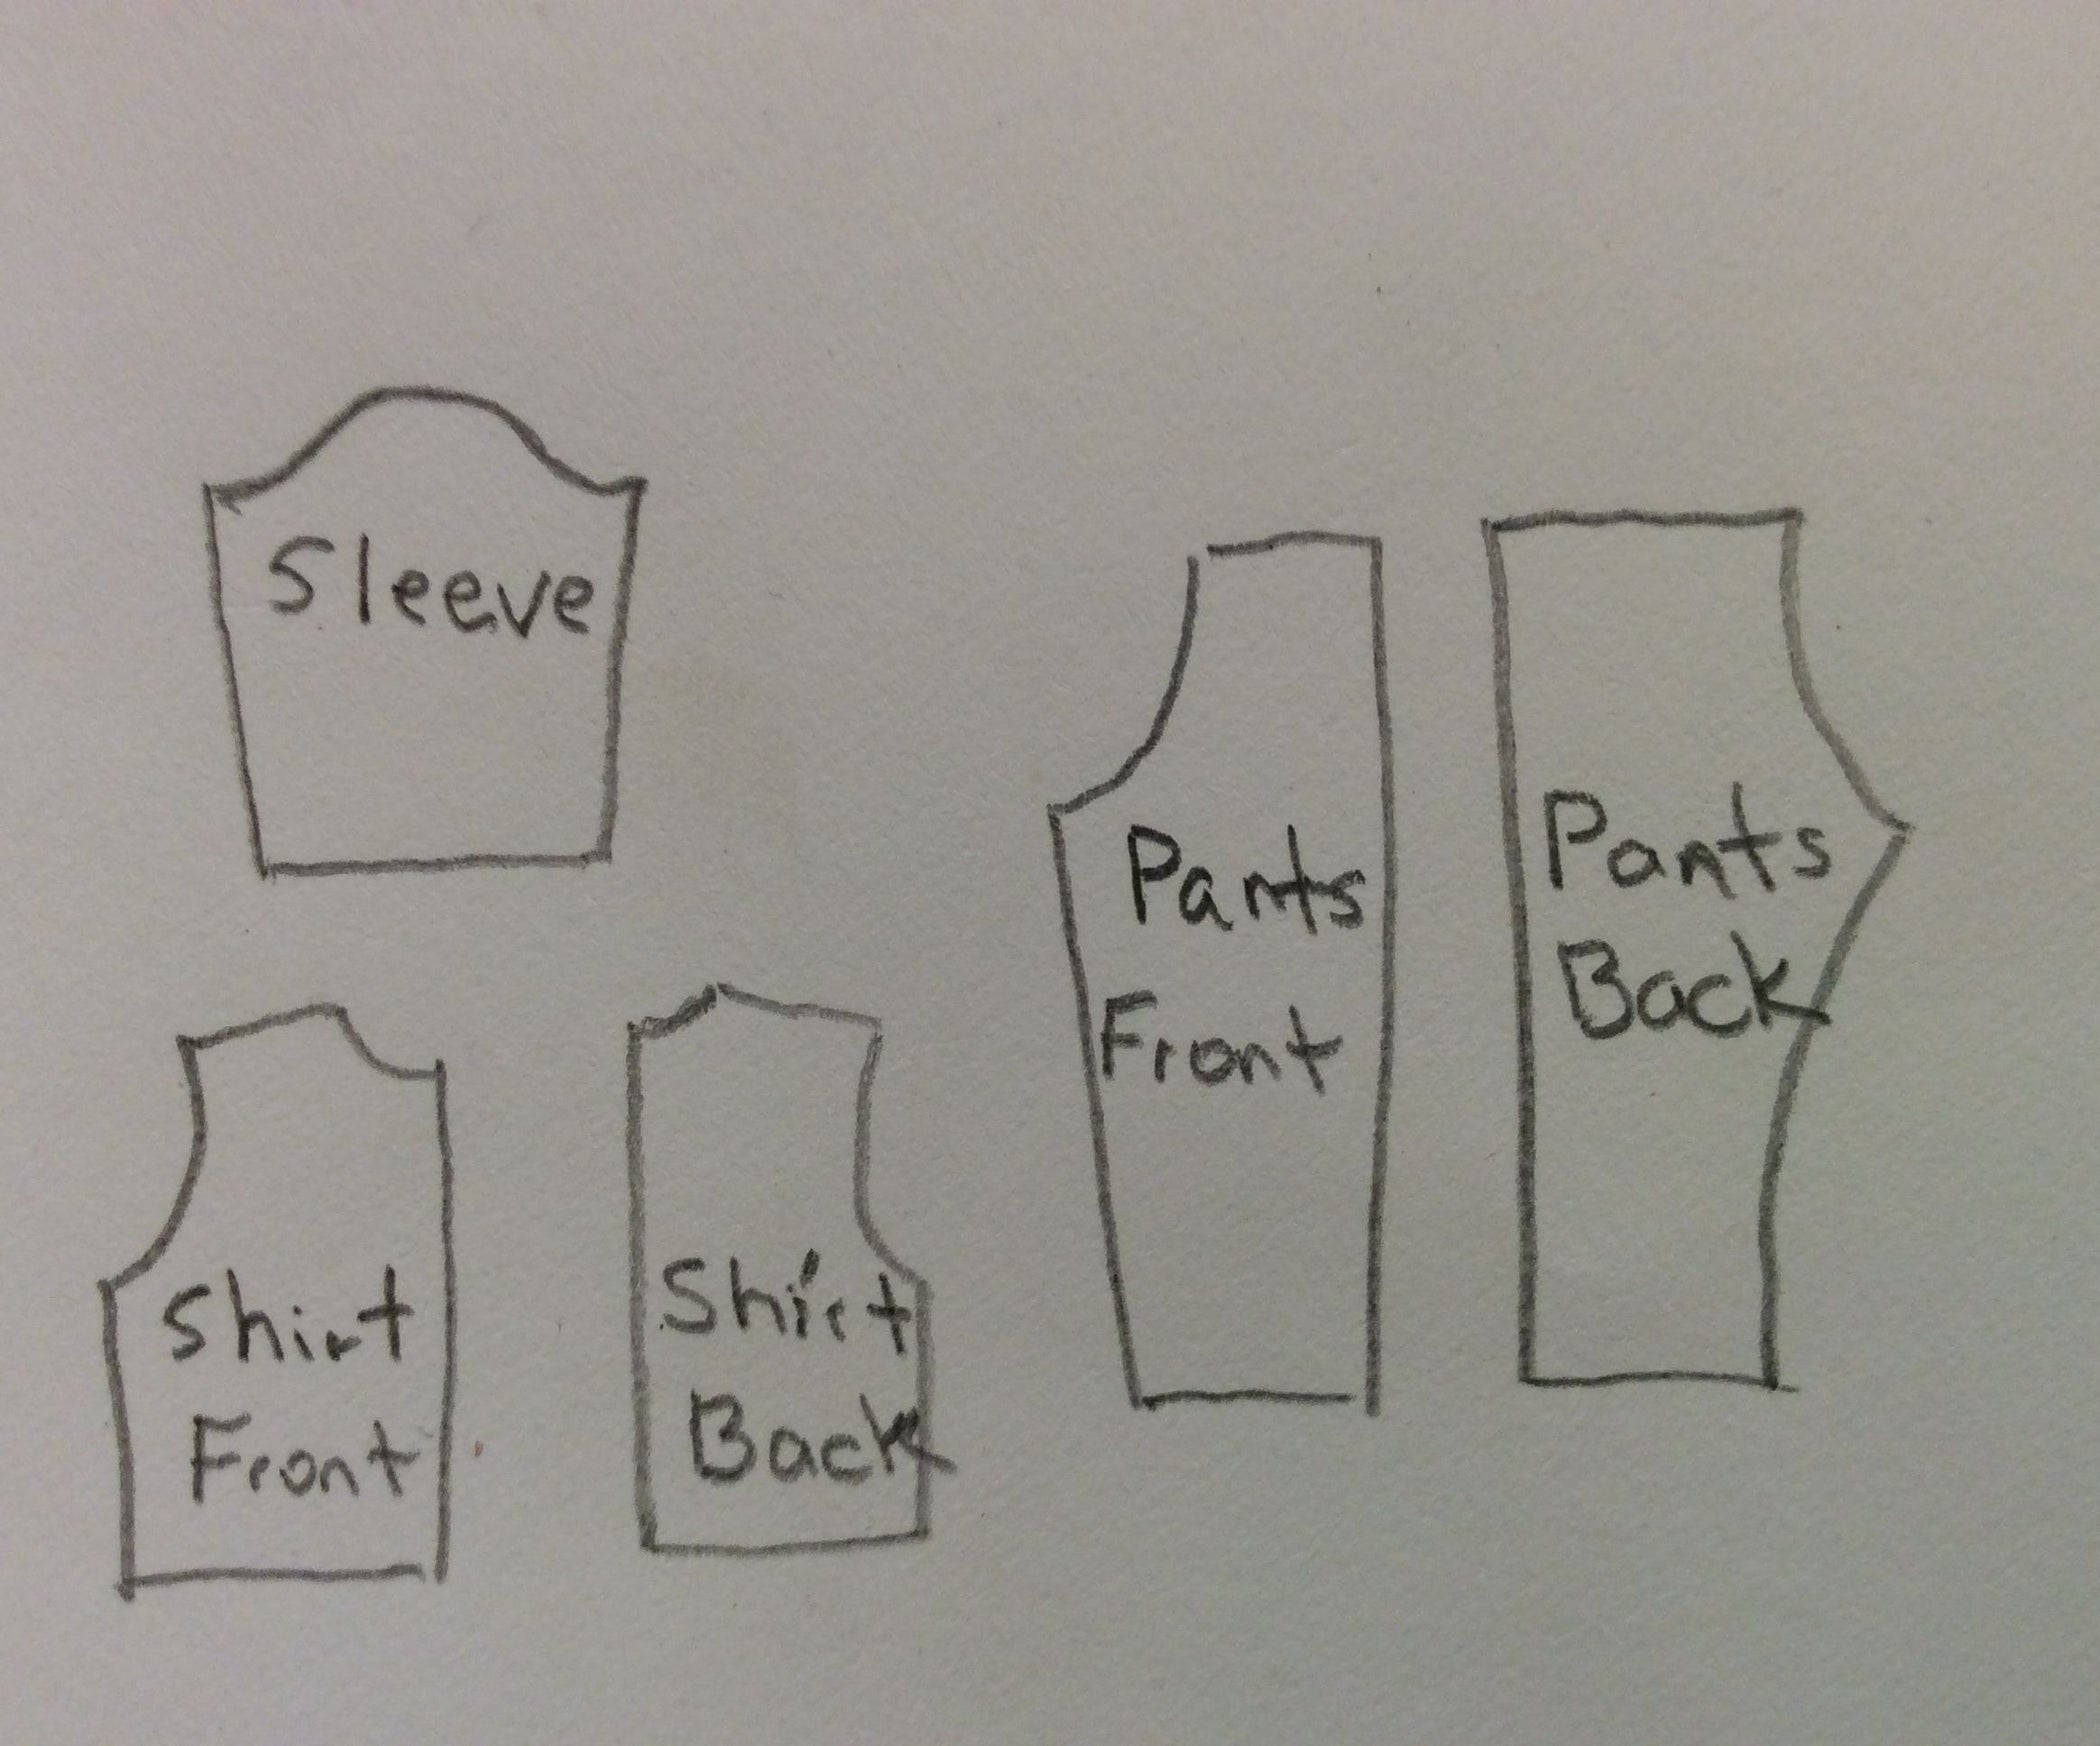 Sleeve
Shirt
Front
Shirt
Back
Pants
Front
Pants
Back